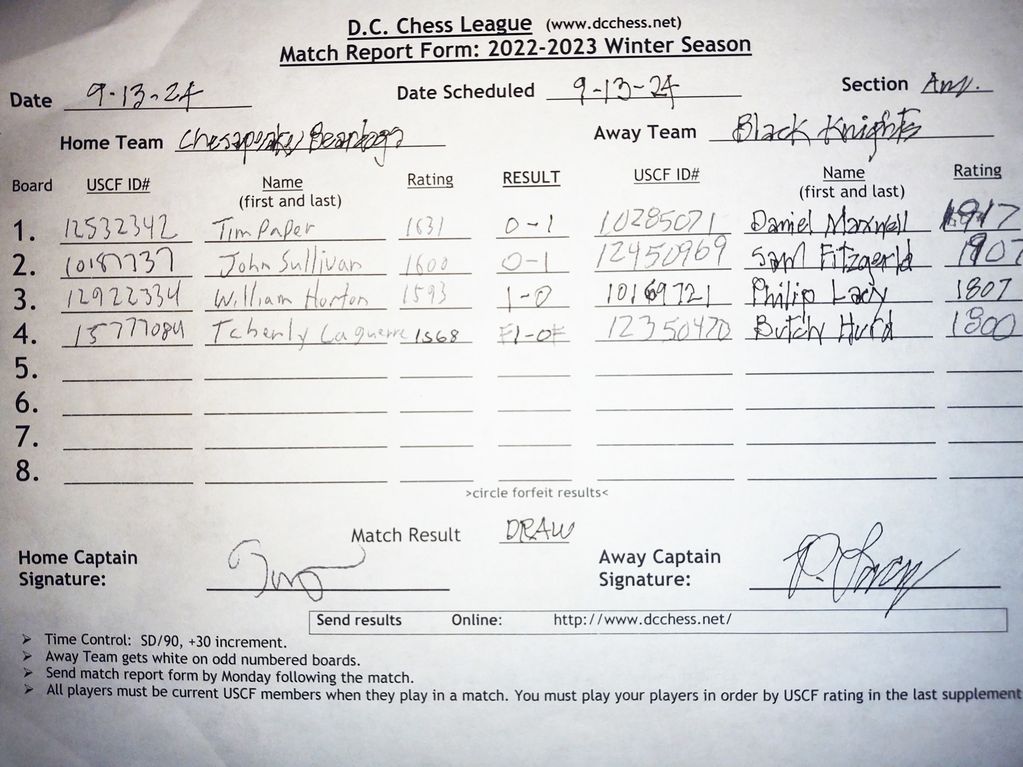 D.C. Chess League (www.dcchess.net)
Match Report Form: 2022-2023 Winter Season
Date 9-13-24 Date Scheduled 9-13-24 Section Am.
Home Team Chesapeake Away Team Black Knights
Board USCF ID# Name (first and last) Rating RESULT USCF ID# Name (first and last) Rating
1. 12532342 Tim Paper 1631 0-1 10285071 Daniel Maxwell 1917
2. John Sullivan 1600 0-1 12450969 Sam Fitzgerld 1907
3. 12922334 William Horton 1593 1-0 10169721 Philip 1807
4. 15777084 Tchenly Laguerre 1568 F1-0F 12350470 Butch Hurd 1800
5.
6.
7.
8.
>circle forfeit results<
Match Result DRAW
Home Captain Signature: Away Captain Signature:
Send results Online: http://www.dcchess.net/
➢ Time Control: SD/90, +30 increment.
➢ Away Team gets white on odd numbered boards.
➢ Send match report form by Monday following the match.
➢ All players must be current USCF members when they play in a match. You must play your players in order by USCF rating in the last supplement